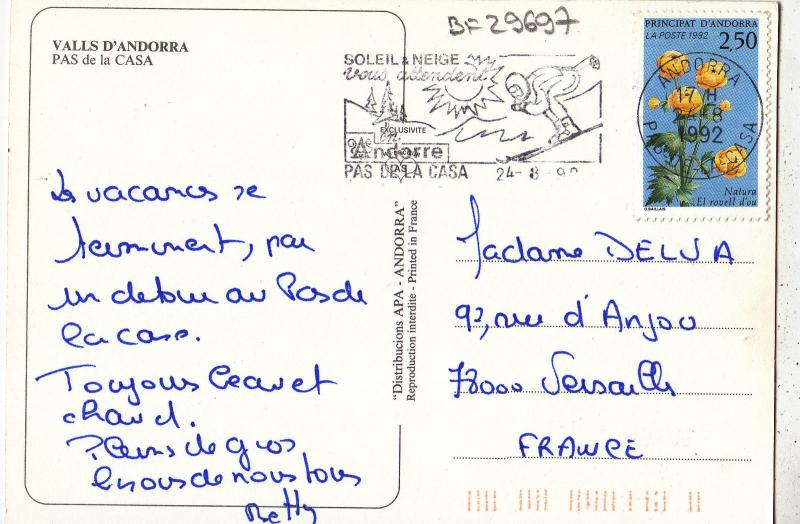 VALLS D'ANDORRA
PAS de la CASA
BF 29697
SOLEIL & NEIGE
vous attendent
EXCLUSIVITE
en
Andorre
PAS DE LA CASA
24-8-92
PRINCIPAT D'ANDORRA
LA POSTE 1992
2,50
ANDORRA
17 H
8
1992
CASA
Natura
El rovell d'ou
Les vacances se
terminent, par
un detour au Pas de
la case.
Toujours beau et
chaud.
Pleins de gros
bisous de nous tous
Betty
"Distribucions APA - ANDORRA"
Reproduction interdite - Printed in France
Madame DELVA
92, rue d'Anjou
78000 Versailles
FRANCE